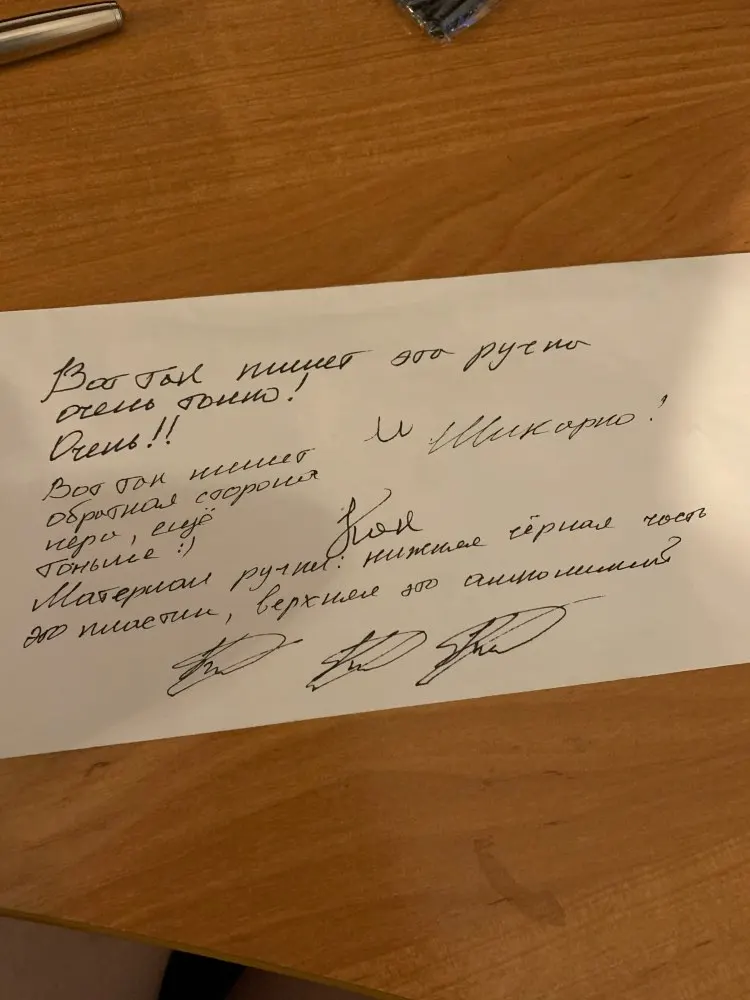 Вот так пишет эта ручка
очень тонко!
Очень!!
и Шикарно!
Вот так пишет
обратная сторона
пера, ещё
тоньше :)
Как
Материал ручки: нижняя чёрная часть
это пластик, верхняя это алюминий